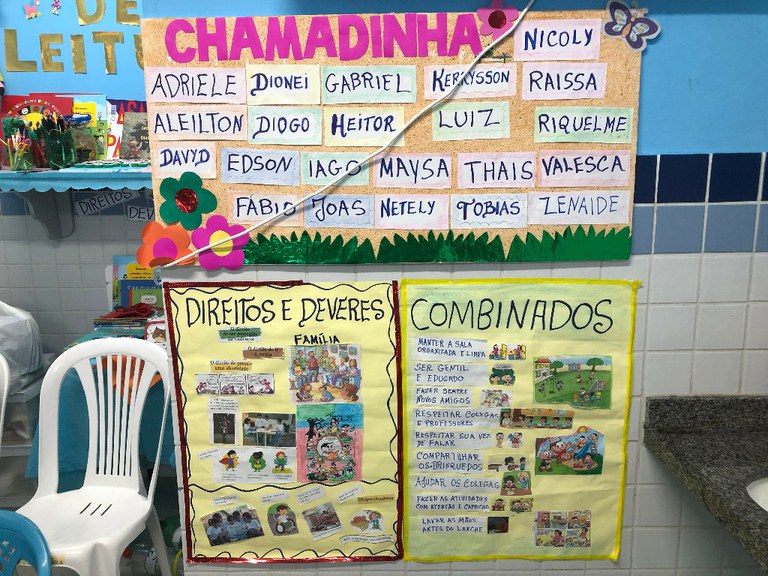 DE
LEITU
CHAMADINHA
NICOLY
ADRIELE DIONEI GABRIEL KERRYSSON RAISSA
ALEILTON DIOGO HEITOR LUIZ RIQUELME
DAVYD EDSON IAGO MAYSA THAIS VALESCA
FABIO JOAS NETELY TOBIAS ZENAIDE
DIREITOS
DEV
DIREITOS E DEVERES
FAMÍLIA
COMBINADOS
MANTER A SALA
ORGANIZADA E LIMPA
SER GENTIL
E EDUCADO
FAZER SEMPRE
NOVOS AMIGOS
RESPEITAR COLEGAS
E PROFESSORES
RESPEITAR SUA VEZ
DE FALAR
COMPARTILHAR
OS BRINQUEDOS
AJUDAR OS COLEGAS
FAZER AS ATIVIDADES
COM ATENÇÃO E CAPRICHO
LAVAR AS MÃOS
ANTES DO LANCHE